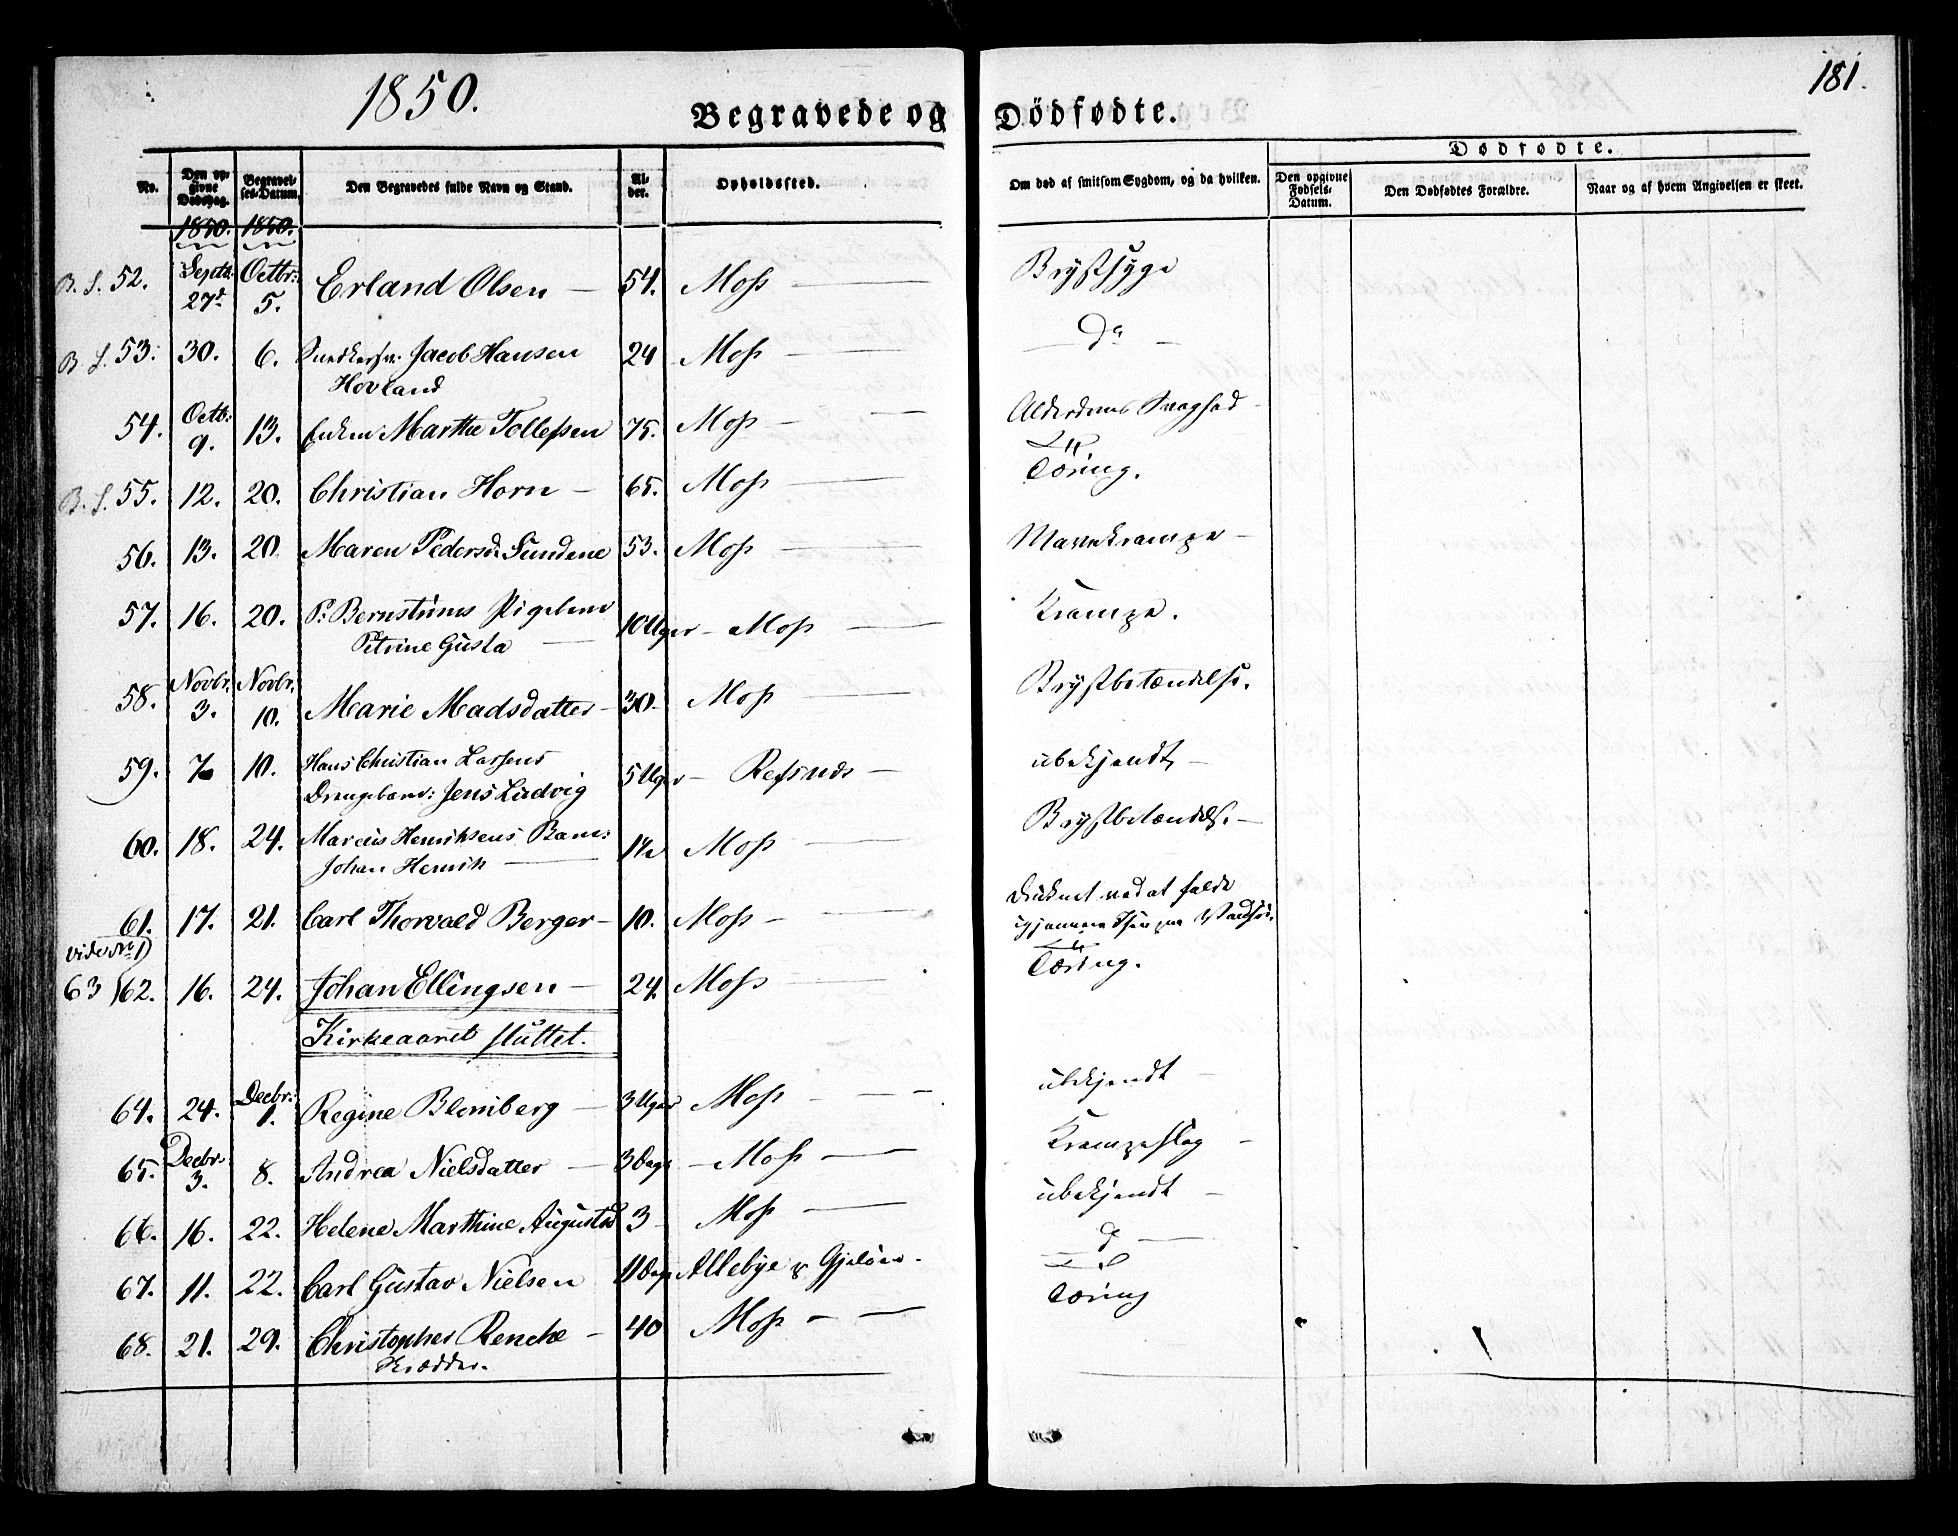 1850.
181.
Begravede og Dödfødte.
Dødfødte.
No. Den opgivne Dødsdag. Begravelses-Datum. Den Begravedes fulde Navn og Stand. Alder. Opholdssted. Om død af smitsom Sygdom, og da hvilken. Den opgivne Fødsels-Datum. Den Dødfødtes Forældre. Naar og af hvem Angivelsen er skeet.
1850. 1850.
B. S. 52. Septb: 27d. Octbr: 5. Erland Olsen — 54. Moss — Brystsyge
B S. 53. 30. 6. Jacob Hansen 24 Moss — — do —
Hovland
54. Octb: 9. 13. Enken Marthe Tollefsen 75. Moss — Alderdoms Svaghed
B. S. 55. 12. 20. Christian Horn — 65. Moss — Tæring.
56. 13. 20 Maren Pedersd. Sundene 53. Moss — Mavekrampe —
57. 16. 20. P. Bernstuns Pigebarn 10 Uger — Moss — Krampe.
Petrine Gusta —
58. Novbr. 3. Novbr. 10. Marie Madsdatter — 30 Moss — Brystbetændelse.
59. 7 10. Hans Christian Larsens 5 Uger — Refsnes — ubekjendt —
Drengebarn: Jens Ludvig
60. 18. 24. Marcus Henriksens Barn: Moss — Brystbetændelse —
Johan Henrik —
61. 17. 21. Carl Thorvald Berger — 10. Moss — Druknet ved at falde
igjennem Isen paa Vandsøe.
vide No 1)
63 (62. 16. 24. Johan Ellingsen — 24. Moss — Tæring.
Kirkeaaret sluttet.
64. 24. Decbr: 1. Regine Blomberg — 3 Uger Moss — ubekjendt —
65. Decbr. 3. 8. Andrea Nielsdatter — 3 Dage — Moss — Krampeslag —
66. 16. 22. Helene Marthine Augustad 3 Moss — ubekjendt —
67. 11. 22. Carl Gustav Nielsen 11 Dage Allebye p. Gjeløen. do —
68. 21. 29. Christopher Renche — 40 Moss — Tæring
Skrædder.